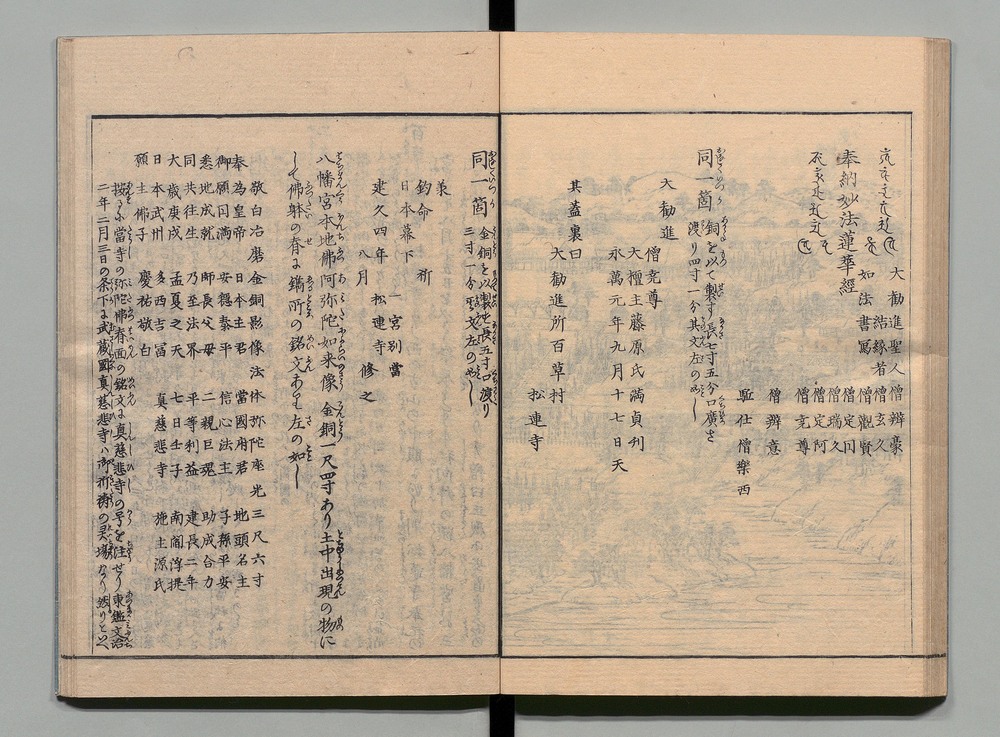 大勧進聖人 僧辨豪
結縁者 僧玄久
如法書寫 僧觀賢
僧定円
奉納妙法蓮華經
僧瑞久
僧定阿
僧竞尊
僧辨意
駈仕僧樂西
同一箇 銅を以て製す長七寸五分口廣さ
渡り四寸一分其文左のごとし
大勧進
僧竞尊
大檀主藤原氏満貞利
永萬元年九月十七日天
其蓋裏曰
大勧進所百草村
松連寺
同一箇 金銅を以製せ長五寸口渡り
三寸一分
奉
鈞命 祈
日本幕下 一宮別當
建久四年八月 松連寺 修之
八幡宮本地佛阿弥陀如来像 金銅一尺四寸あり土中出現の物に
して佛躰の脊に鐫所の銘文あり左の如し
敬白冶磨金銅影像法体弥陀座光三尺六寸
奉為皇帝 日本主君 當國府君 地頭名主
御願圓満 安穏泰平 信心法主 子孫平安
悉地成就 師長父母 二親巨魂 助成合力
同共往生 乃至法界 平等利益 建長二年
大歳庚戌 孟夏之天 七日壬子 南閻浮提
日本武州 多西吉冨 真慈悲寺 施主源氏
願主佛子 慶祐敬白
按るに當寺の弥陀佛脊面の銘文に真慈悲寺の号を注せり東鑑文治
二年二月三日の条下に武蔵國真慈悲寺ハ御祈禱の霊場なり然りといへ